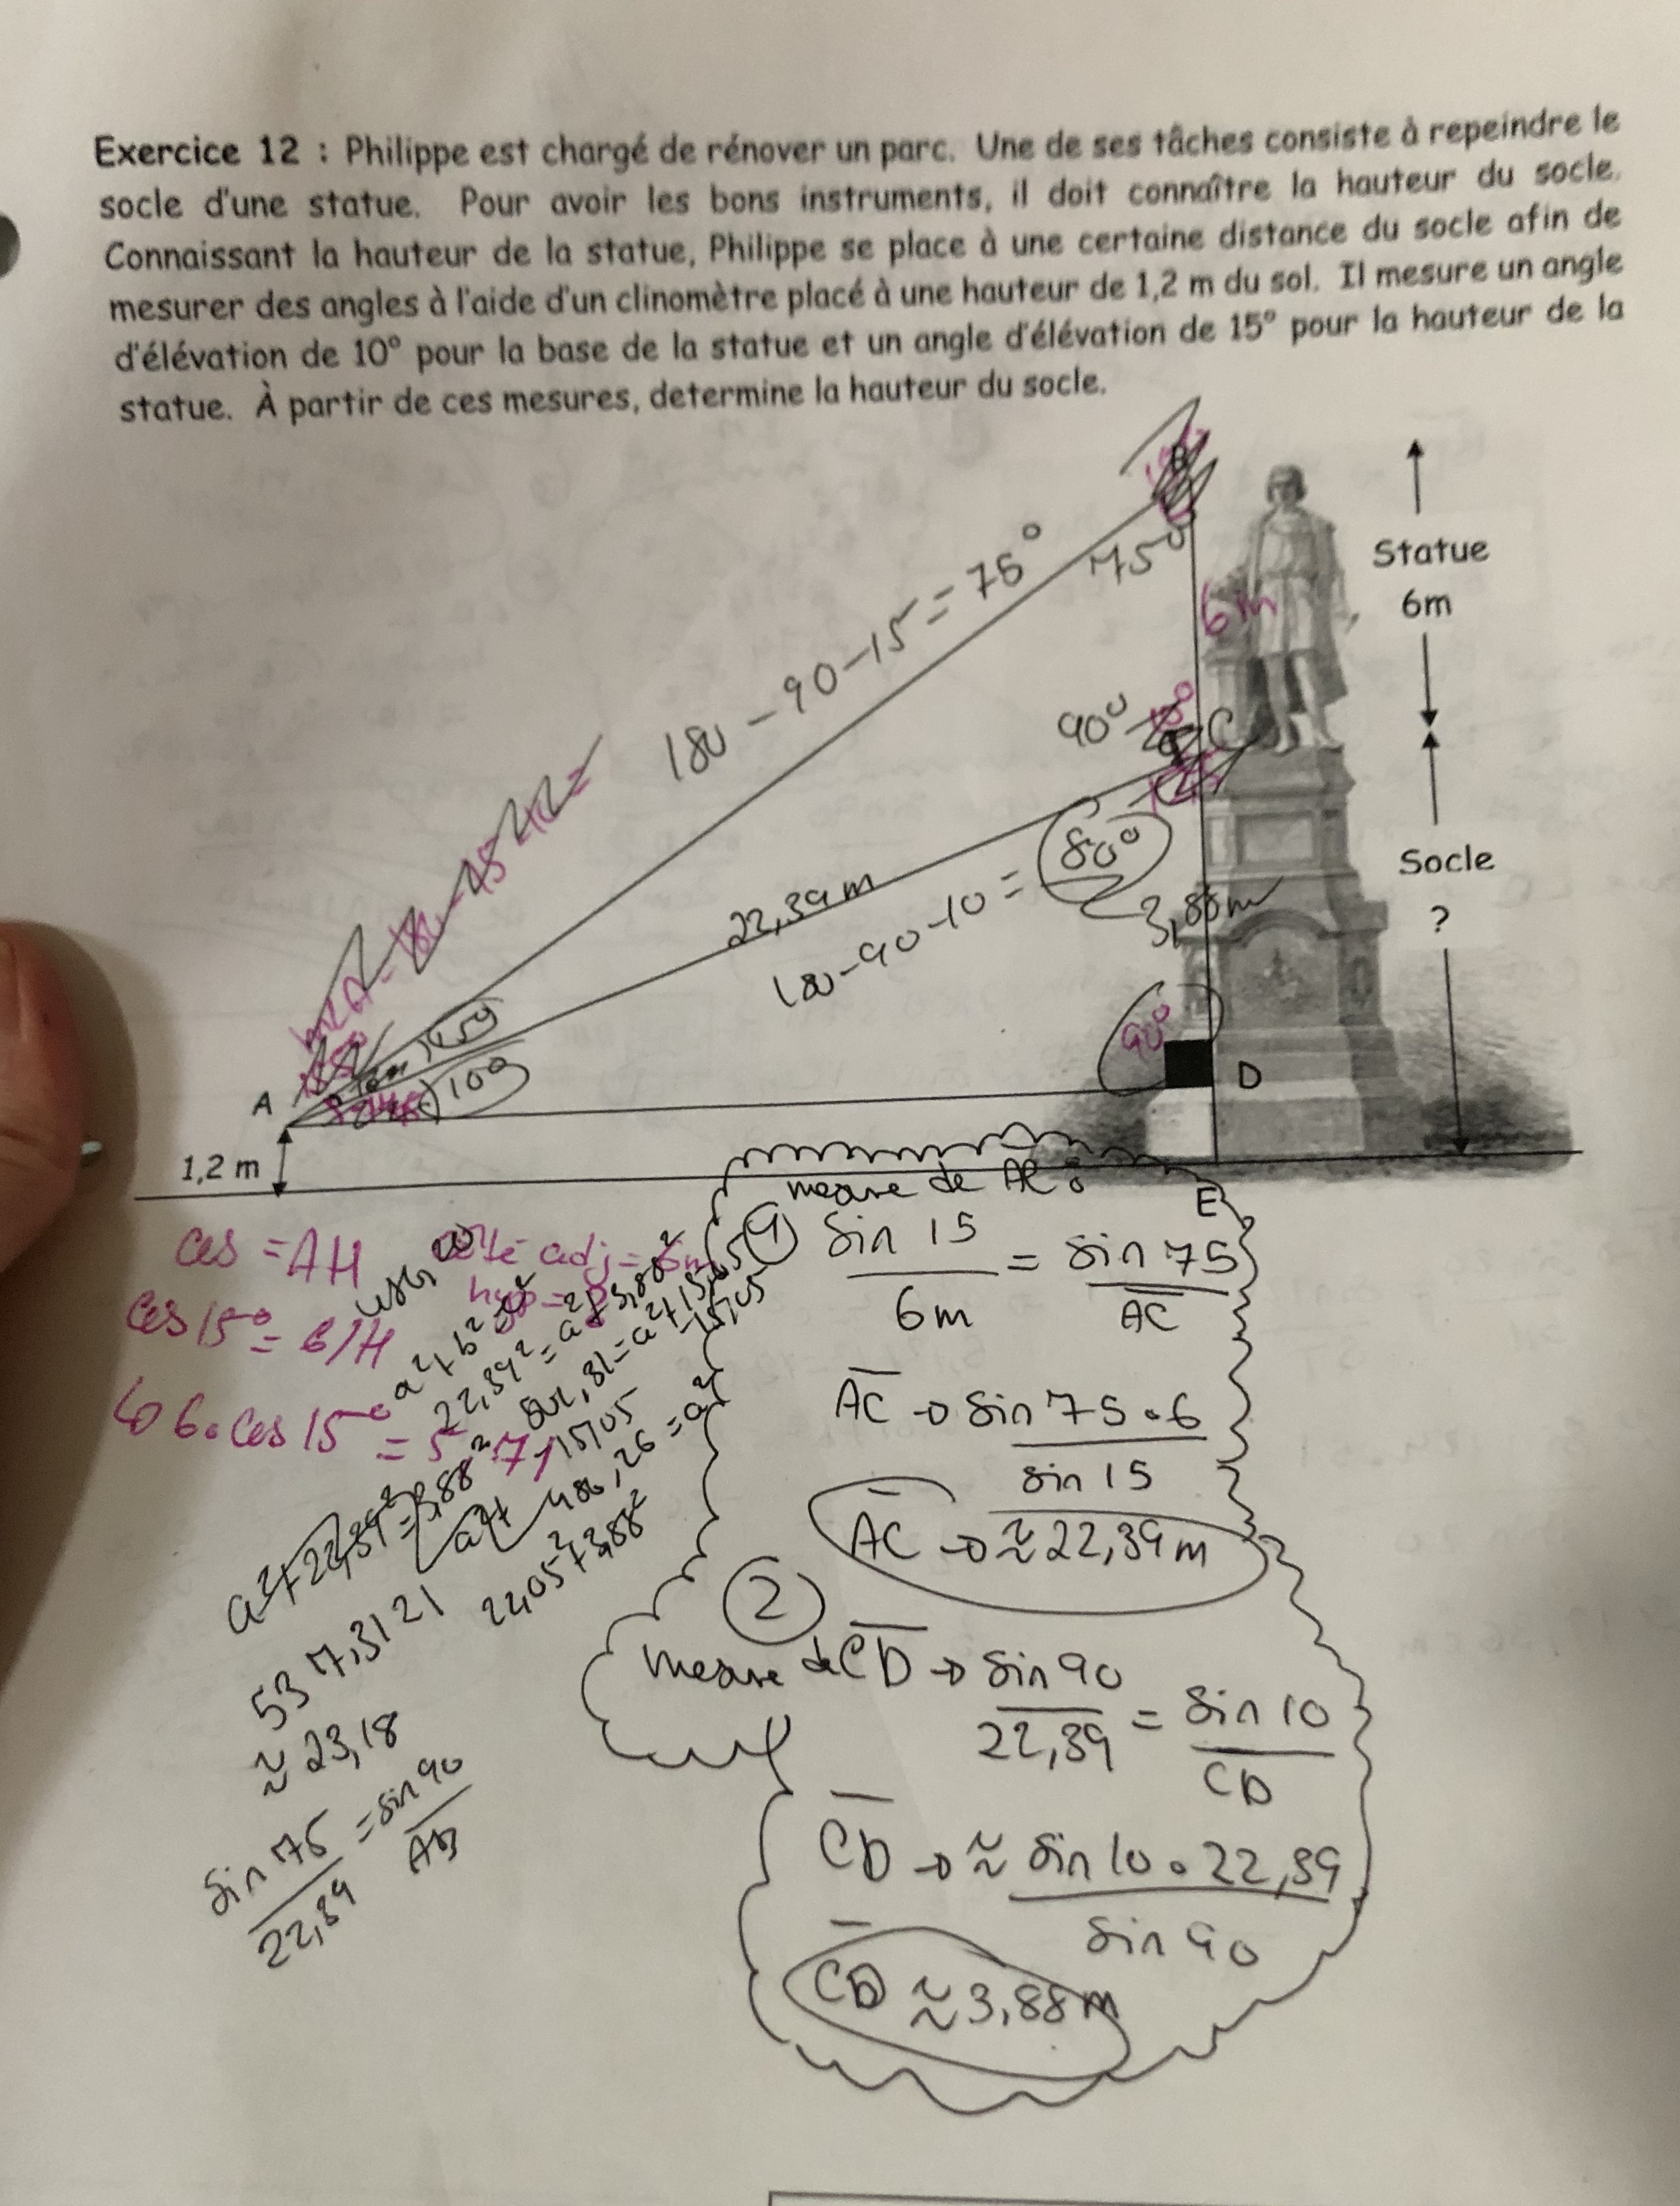 Exercice 12 : Philippe est chargé de rénover un parc. Une de ses tâches consiste à repeindre le
socle d'une statue. Pour avoir les bons instruments, il doit connaître la hauteur du socle.
Connaissant la hauteur de la statue, Philippe se place à une certaine distance du socle afin de
mesurer des angles à l'aide d'un clinomètre placé à une hauteur de 1,2 m du sol. Il mesure un angle
d'élévation de 10° pour la base de la statue et un angle d'élévation de 15° pour la hauteur de la
statue. À partir de ces mesures, determine la hauteur du socle.
B
180 - 90 - 15 = 75°
75°
6m
Statue
6m
90°
C
80°
22,39 m
180-90-10 =
3,88m
Socle
?
90°
15°
10°
A
D
1,2 m
E
cos = AH
côté adj = 6m
cos 15° = 6/H
↳ 6.cos 15° = 5,71
a²+b²=c²
22,39² = a²+3,88²
501,31=a²+15,05
-15,05 -15,05
486,26 = a²
a²+22,39²=3,88²
22,05²+3,88²
537,3121
≈ 23,18
sin 75 = sin 90
22,39 AB
mesure de AC :
① sin 15 = sin 75
6m AC
AC → sin 75 . 6
sin 15
AC → ≈ 22,39 m
②
mesure de CD → sin 90 = sin 10
22,39 CD
CD → ≈ sin 10 . 22,39
sin 90
CD ≈ 3,88m